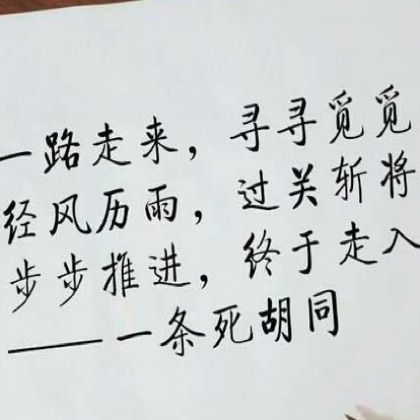 一路走来，寻寻觅觅
经风历雨，过关斩将
步步推进，终于走入
——一条死胡同